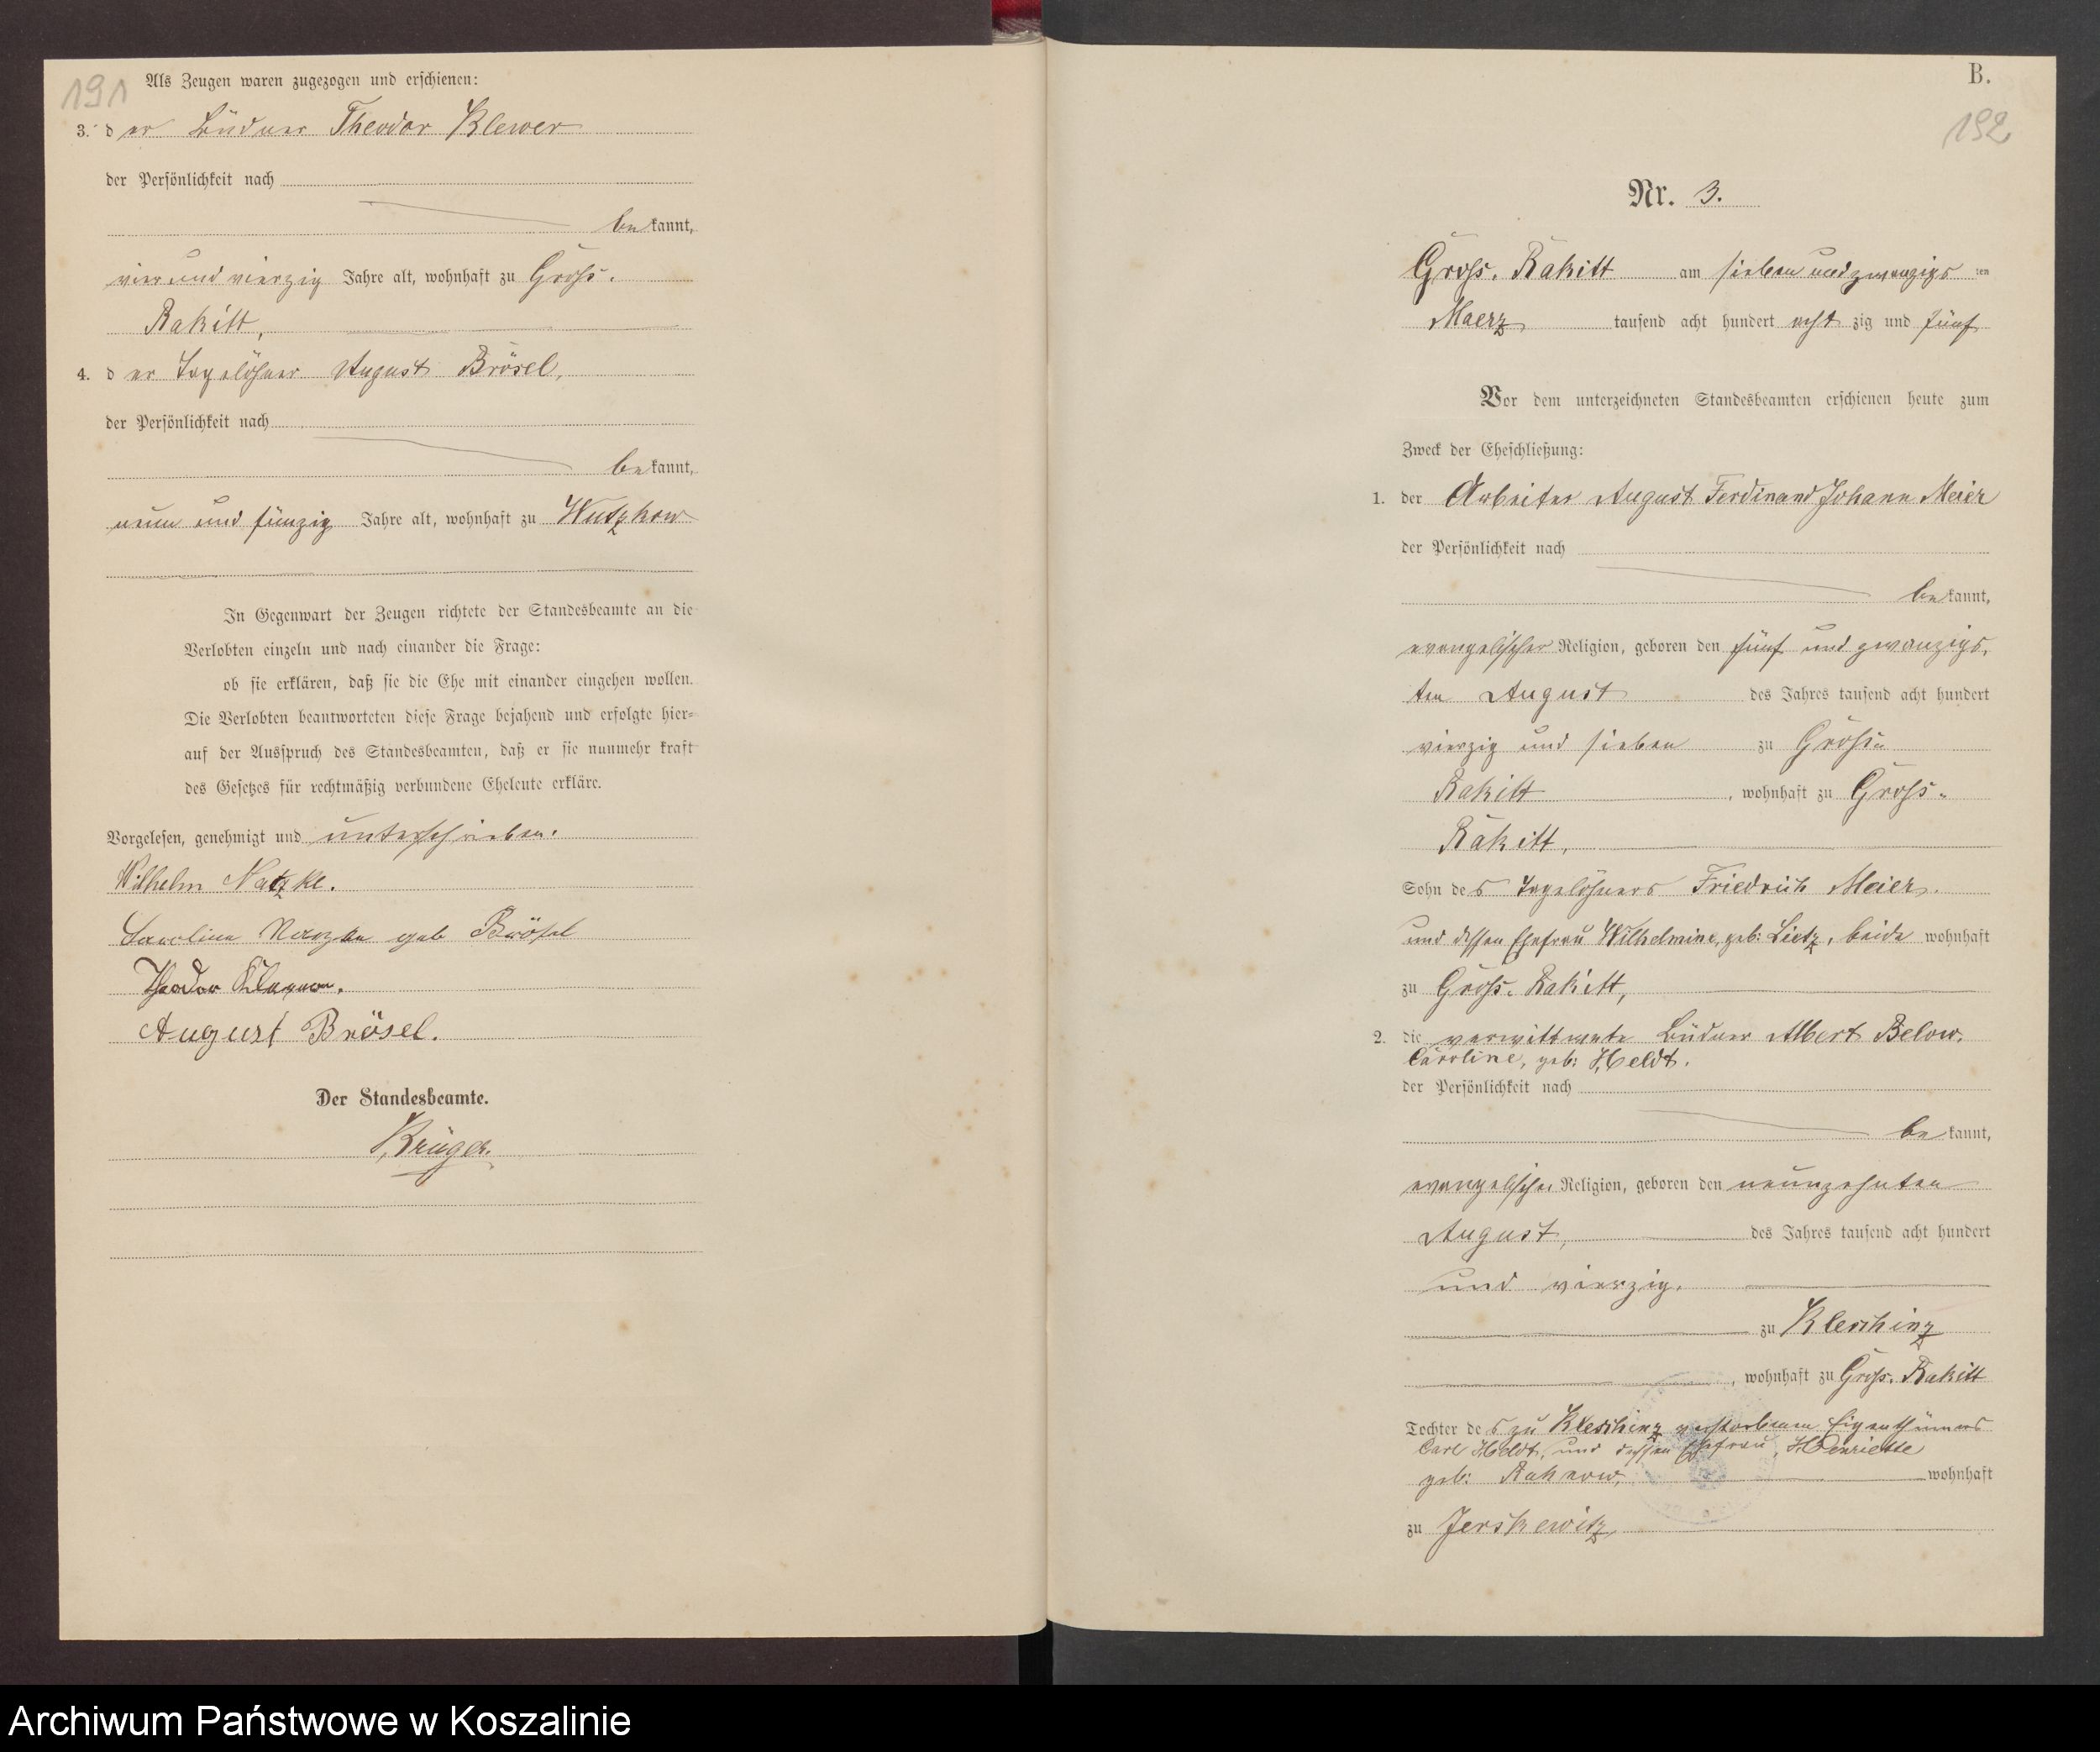 191
Als Zeugen waren zugezogen und erschienen:
3. der Büdner Theodor Klewer
der Persönlichkeit nach
bekannt,
vier und vierzig Jahre alt, wohnhaft zu Gross-
Rakitt,
4. der Tagelöhner August Brösel,
der Persönlichkeit nach
bekannt,
neun und fünzig Jahre alt, wohnhaft zu Wutzkow
In Gegenwart der Zeugen richtete der Standesbeamte an die
Verlobten einzeln und nach einander die Frage:
ob sie erklären, daß sie die Ehe mit einander eingehen wollen.
Die Verlobten beantworteten diese Frage bejahend und erfolgte hier=
auf der Ausspruch des Standesbeamten, daß er sie nunmehr kraft
des Gesetzes für rechtmäßig verbundene Eheleute erkläre.
Vorgelesen, genehmigt und unterschrieben.
Wilhelm Natzke.
Caroline geb Brösel
Theodor
August Brösel.
Der Standesbeamte.
Krüger.
B.
192
Nr. 3.
Gross-Rakitt am sieben und zwanzigsten
Maerz tausend acht hundert achtzig und fünf
Vor dem unterzeichneten Standesbeamten erschienen heute zum
Zweck der Eheschließung:
1. der Arbeiter August Ferdinand Johann Meier
der Persönlichkeit nach
bekannt,
evangelischer Religion, geboren den fünf und zwanzigs-
ten August des Jahres tausend acht hundert
vierzig und sieben zu Gross-
Rakitt, wohnhaft zu Gross-
Rakitt,
Sohn des Tagelöhners Friedrich Meier
und dessen Ehefrau Wilhelmine, geb: Lietz, beide wohnhaft
zu Gross-Rakitt,
2. die verwittwete Büdner Albert Below,
Caroline, geb: Heldt.
der Persönlichkeit nach
bekannt,
evangelischer Religion, geboren den neunzehnten
August, des Jahres tausend acht hundert
und vierzig.
zu Kleschinz
, wohnhaft zu Gross-Rakitt
Tochter des zu Kleschinz verstorbenen Eigenthümers
Carl Heldt, und dessen Ehefrau, Henriette
geb: wohnhaft
zu Jerskewitz
Archiwum Państwowe w Koszalinie